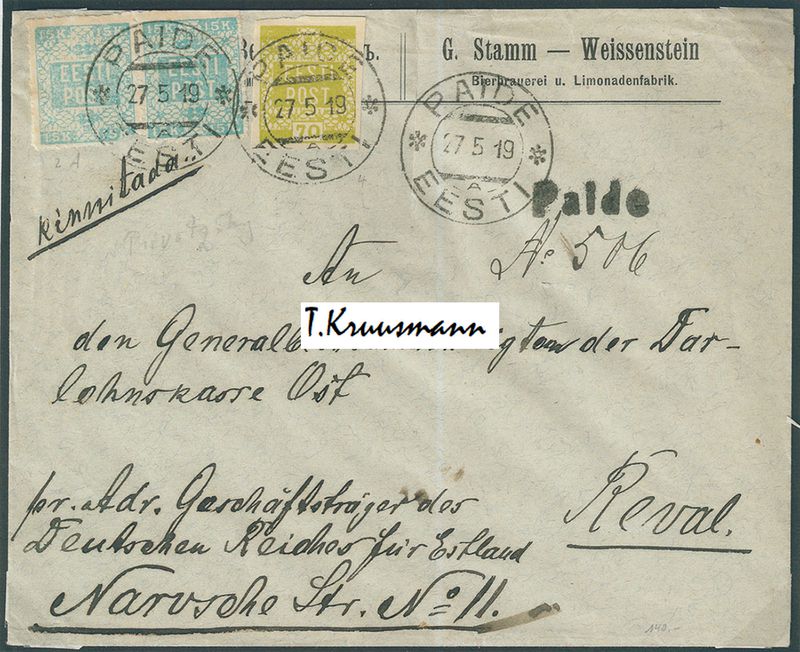 15K 15K
EESTI EESTI
POST POST
15K 15K
EESTI
POST
70
PAIDE
27 5 19
A
EESTI
PAIDE
27 5 19
A
EESTI
PAIDE
27 5 19
A
EESTI
G. Stamm — Weissenstein
Bierbrauerei u. Limonadenfabrik.
Paide
kinnitada.
№ 506
An
T.Kruusmann
den General der Dar-
lehnskasse Ost
pr. Adr. Geschäftsträger des
Deutschen Reiches für Estland
Reval.
Narvsche Str. № 11.
140.-